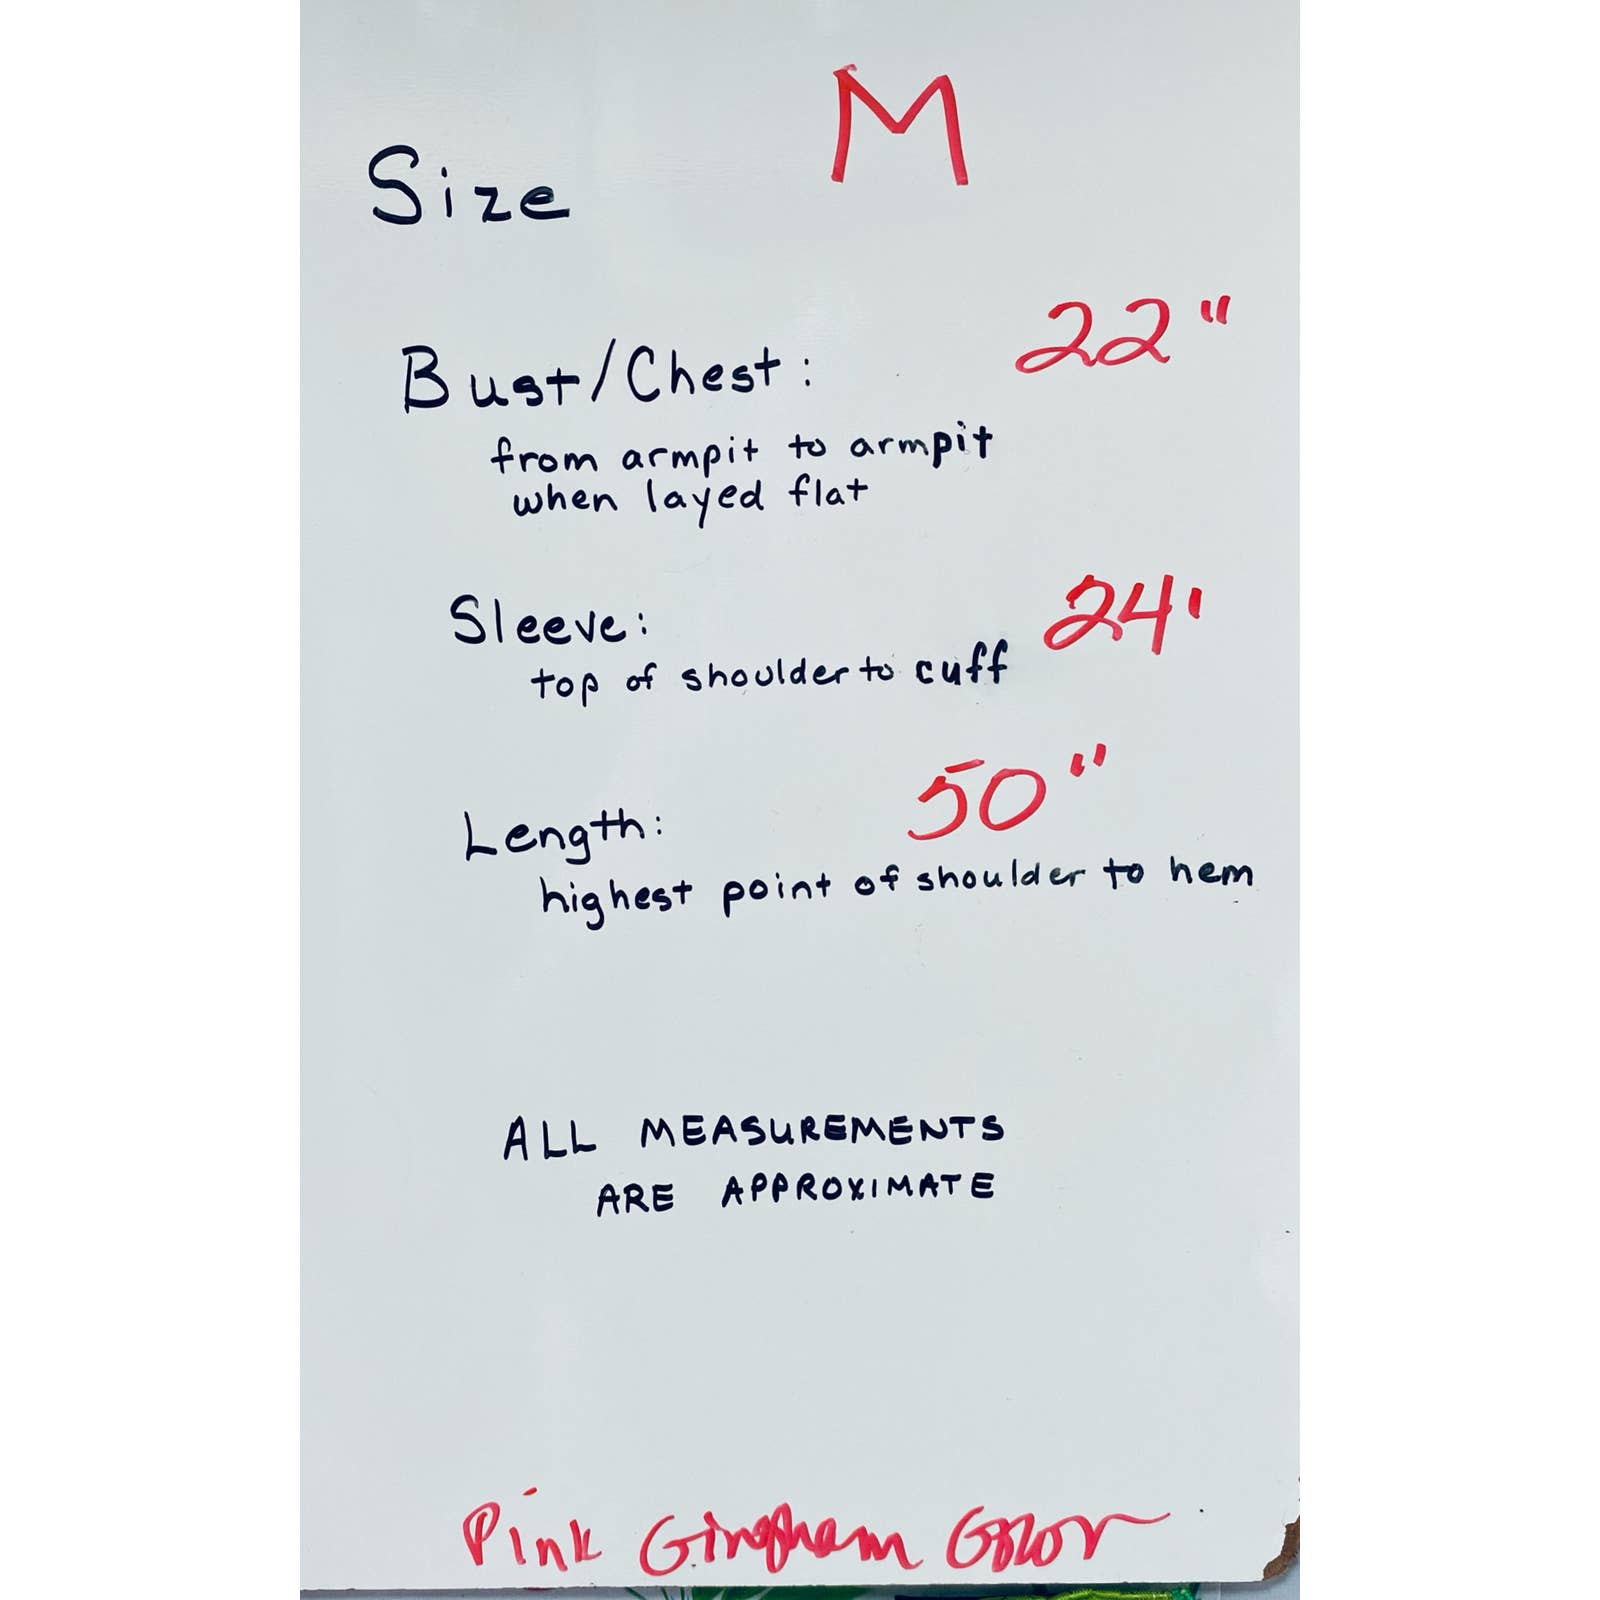 M
Size
22"
Bust/Chest:
from armpit to armpit
when layed flat
24'
Sleeve:
top of shoulder to cuff
50"
Length:
highest point of shoulder to hem
ALL MEASUREMENTS
ARE APPROXIMATE
Pink Gingham